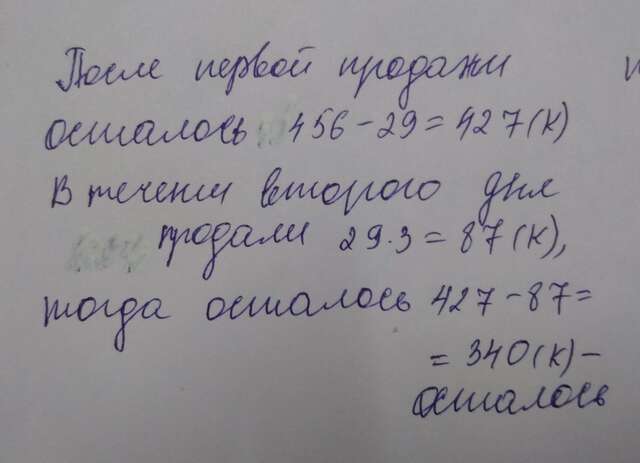 После первой продажи
осталось 456-29=427(к)
В течении второго дня
продали 29·3=87(к),
тогда осталось 427-87=
=340(к)-
осталось